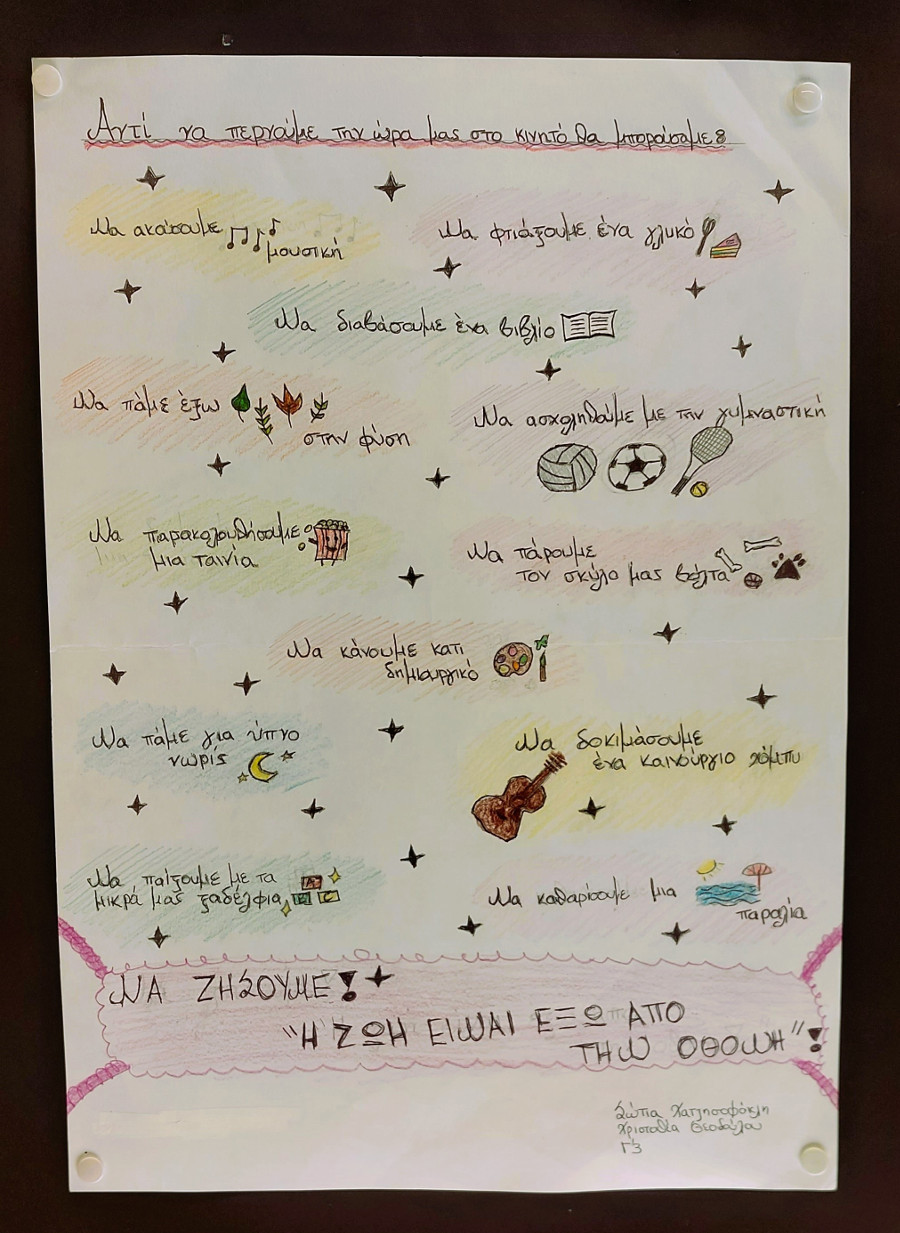 Αντί να περνούμε την ώρα μας στο κινητό θα μπορούσαμε:
Να ακούσουμε
μουσική
Να φτιάξουμε ένα γλυκό
Να διαβάσουμε ένα βιβλίο
Να πάμε έξω
στην φύση
Να ασχοληθούμε με την γυμναστική
Να παρακολουθήσουμε
μια ταινία
Να πάρουμε
τον σκύλο μας βόλτα
Να κάνουμε κατι
δημιουργικό
Να πάμε για ύπνο
νωρίς
Να δοκιμάσουμε
ένα καινούργιο χόμπυ
Να παίξουμε με τα
μικρά μας ξαδέλφια
Να καθαρίσουμε μια
παραλία
ΝΑ ΖΗΣΟΥΜΕ!
"Η ΖΩΗ ΕΙΝΑΙ ΕΞΩ ΑΠΟ
ΤΗΝ ΟΘΟΝΗ"!
Χατζησοφόκλη
Θεοδούλου
Γ'3